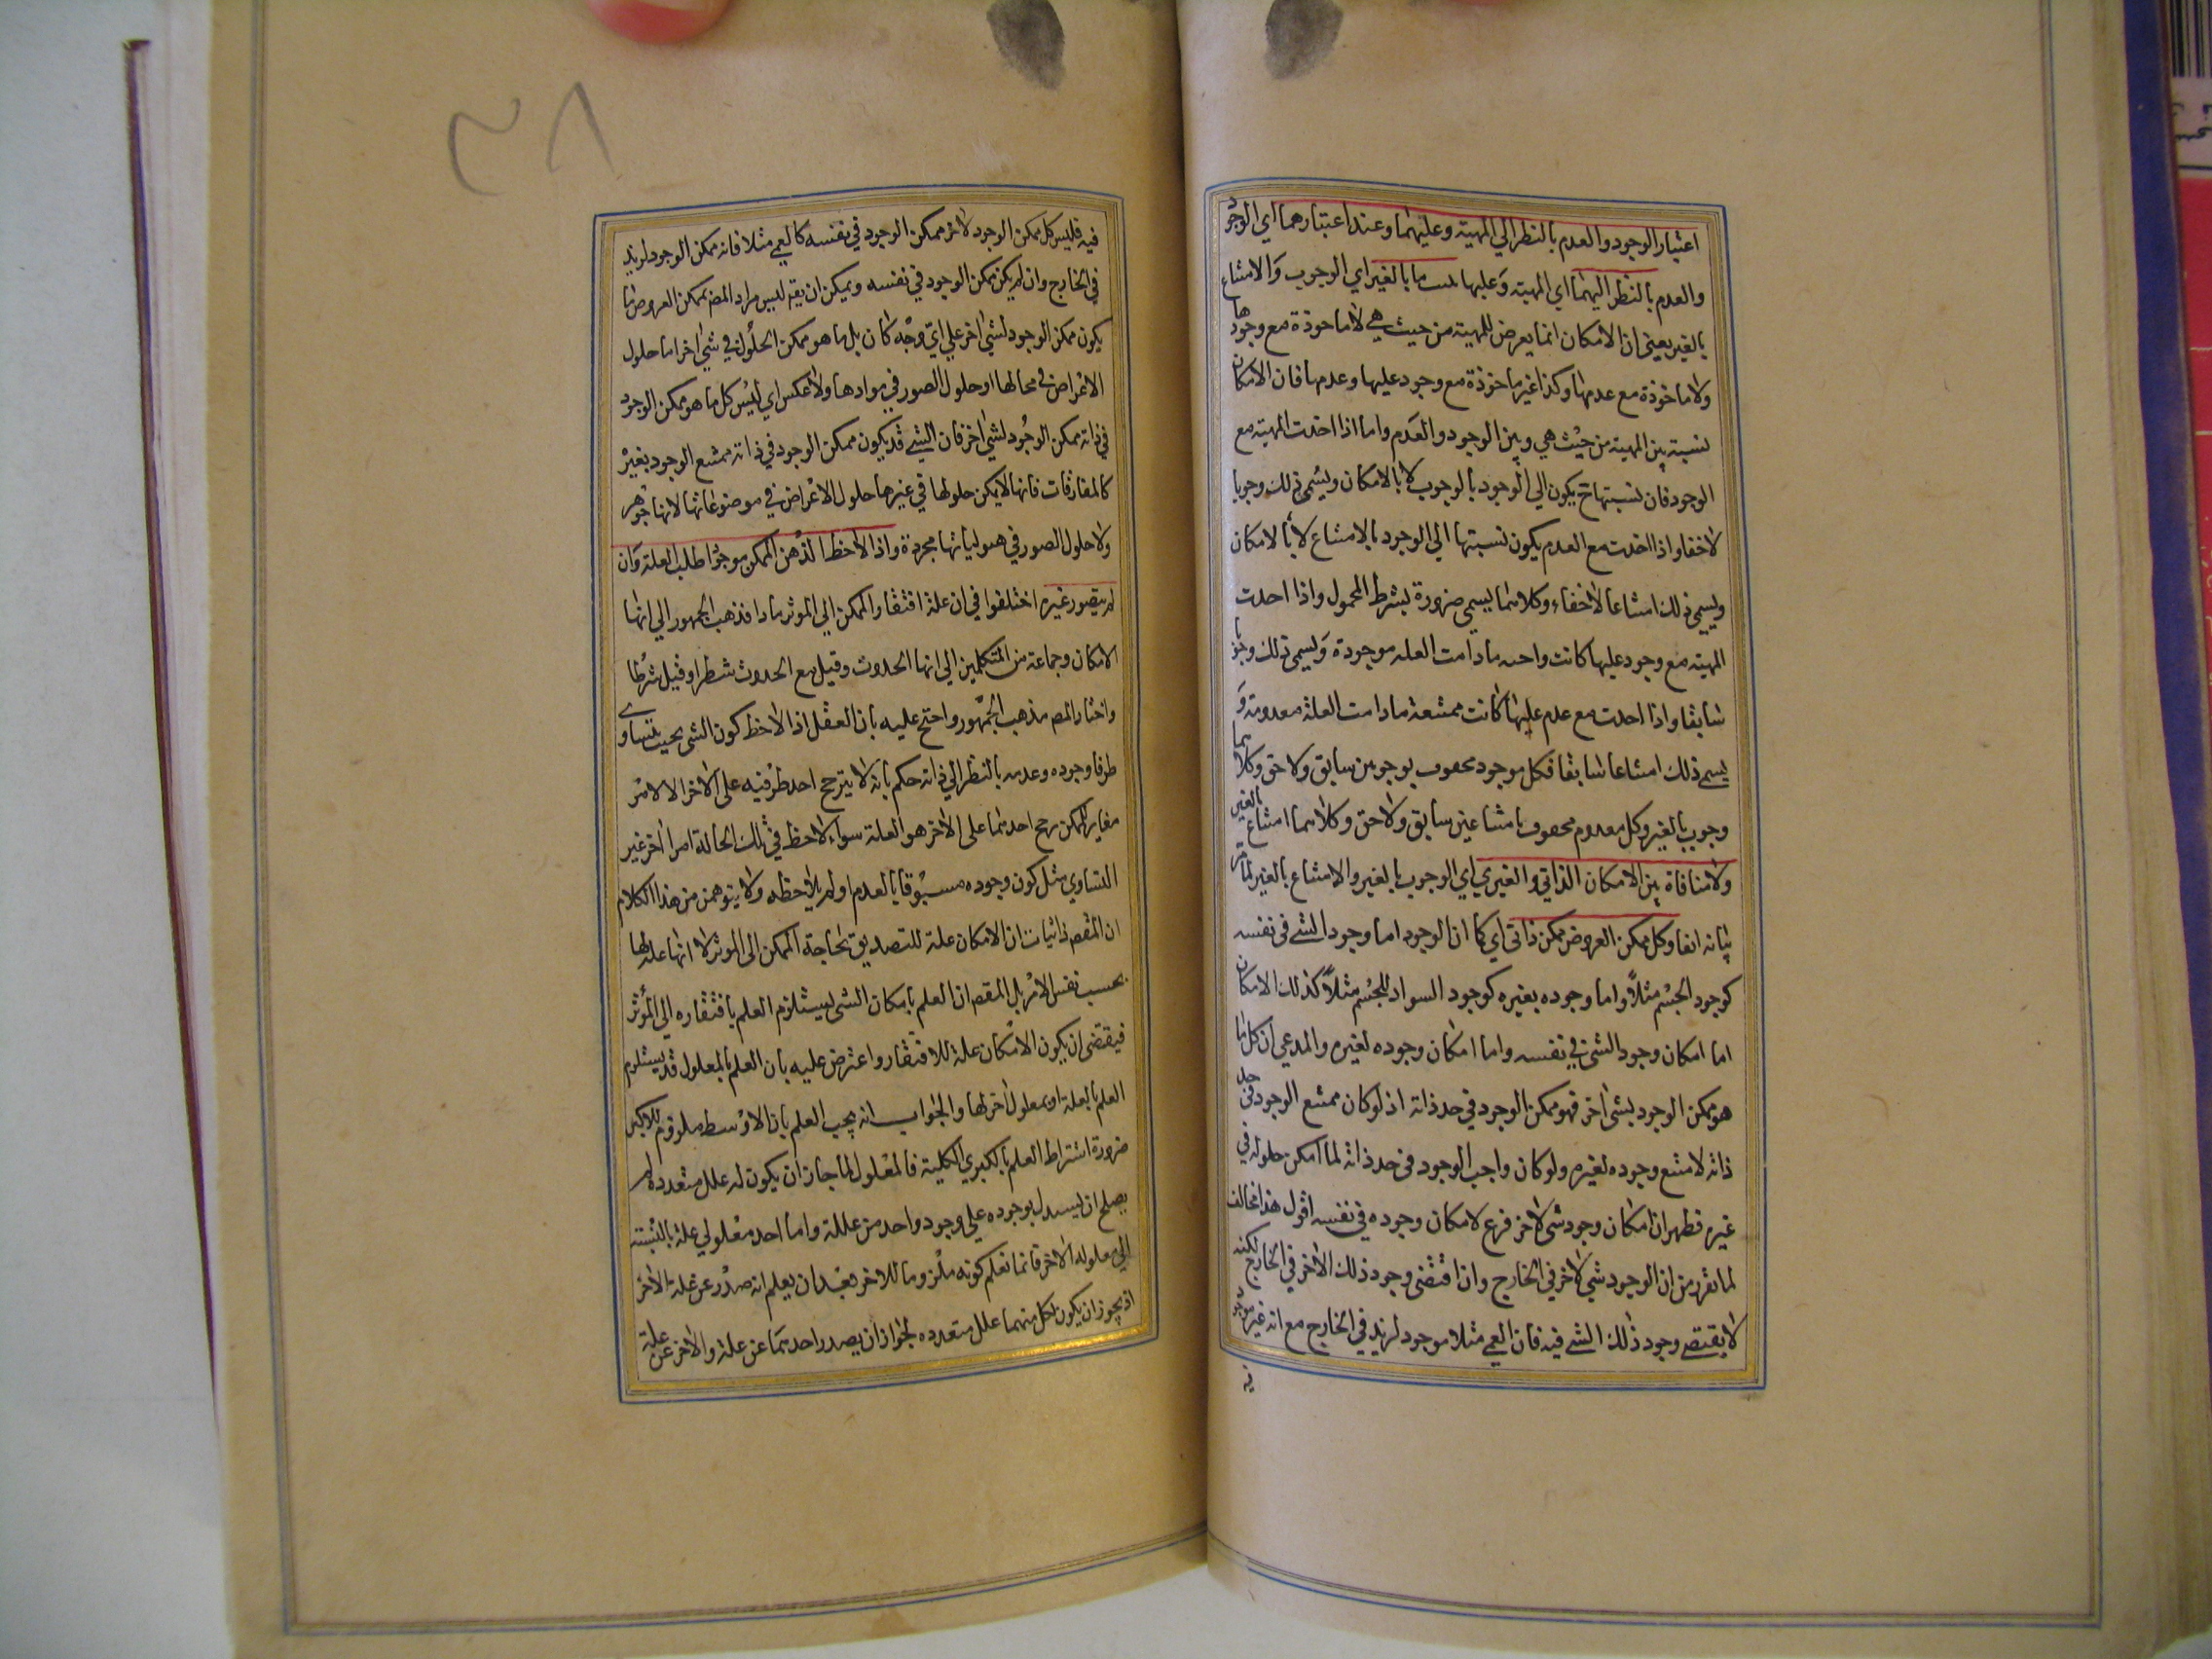 اعتبار الوجود والعدم بالنظر الي المهية وعليهما وعند اعتبارهما اي الوجود
والعدم بالنظر اليهما اي المهية وعليها ما بالغير اي الوجوب والامتناع
بالغير يعني ان الامكان انما يعرض للمهية من حيث هي لا ماخوذة مع وجودها
ولا ماخوذة مع عدمها وكذا غير ماخوذة مع وجود عليها وعدمها فان الامكان
نسبة بين المهية من حيث هي وبين الوجود والعدم واما اذا اخذت المهية مع
الوجود فان نسبتها ح يكون الي الوجود بالوجوب لا بالامكان ويسمي ذلك وجوبا
لاحقا واذا اخذت مع العدم يكون نسبتها الي الوجود بالامتناع لا بالامكان
ويسمي ذلك امتناعا لاحقا وكلاهما يسمي ضرورة بشرط المحمول واذا اخذت
المهية مع وجود عليها كانت واجبه ما دامت العله موجودة ويسمي ذلك وجوبا
سابقا واذا اخذت مع عدم عليها كانت ممتنعة ما دامت العلة معدومة و
يسمي ذلك امتناعا سابقا فكل موجود محفوف بوجوبين سابق ولاحق وكلاهما
وجوب بالغير وكل معدوم محفوف بامتناعين سابق ولاحق وكلاهما امتناع بالغير
ولا منافاة بين الامكان الذاتي والغيري اي الوجوب بالغير والامتناع بالغير لما مر
بيانه انفا وكل ممكن العروض ممكن ذاتي اي كما ان الوجود اما وجود الشي في نفسه
كوجود الجسم مثلاً واما وجوده بغيره كوجود السواد للجسم مثلاً كذلك الامكان
اما امكان وجود الشي في نفسه واما امكان وجوده لغيره والمدعي ان كل ما
هو ممكن الوجود بشي اخر فهو ممكن الوجود في حد ذاته اذ لو كان ممتنع الوجود في حد
ذاته لامتنع وجوده لغيره ولو كان واجب الوجود في حد ذاته لما امكن حلوله في
غيره فظهر ان امكان وجود شي لاخر فرع لامكان وجوده في نفسه اقول هذا مخالف
لما تقرر من ان الوجود شي لاخر في الخارج وان اقتضي وجود ذلك الاخر في الخارج لكنه
لا يقتضي وجود ذلك الشي فيه فان العمي مثلا موجود لزيد في الخارج مع انه غير موجود
فيه
٢٨
فيه فليس كل ممكن الوجود لاخر ممكن الوجود في نفسه كالعمي مثلا فانه ممكن الوجود لزيد
في الخارج وان لم يكن ممكن الوجود في نفسه ويمكن ان يقه ليس مراد المص بممكن العروض ما
يكون ممكن الوجود لشي اخر علي اي وجه كان بل ما هو ممكن الحلول في شي اخر اما حلول
الاعراض في محالها او حلول الصور في موادها ولا عكس اي ليس كل ما هو ممكن الوجود
في ذاته ممكن الوجود لشي اخر فان الشي قد يكون ممكن الوجود في ذاته ممتنع الوجود بغير
كالمفارقات فانها لا يمكن حلولها في غيرها حلول الاعراض في موضوعاتها لانها جوهر
ولا حلول الصور في هيولياتها مجردة واذا لاحظ الذهن الممكن موجودا طلب العلة وان
لم يتصور غيره اختلفوا في ان علة افتقار الممكن الي الموثر ماذا فذهب الجمهور الي انها
الامكان وجماعة من المتكلمين الي انها الحدوث وقيل مع الحدوث شطرا وقيل شرطا
واختار المص مذهب الجمهور واحتج عليه بان العقل اذا لاحظ كون الشي بحيث يتساوي
طرفا وجوده وعدمه بالنظر الي ذاته حكم بانه لا يترجح احد طرفيه علي الاخر الا لامر
مغاير للممكن رجح احدهما علي الاخر هو العلة سواء لاحظ في تلك الحالة امرا اخر غير
التساوي مثل كون وجوده مسبوقا بالعدم او لم يلاحظه ولا يتوهمن من هذا الكلام
ان المقصم اثبات ان الامكان علة للتصديق بحاجة الممكن الي الموثر لا انها علة لها
بحسب نفس الامر بل المقصم ان العلم بامكان الشي يستلزم العلم بافتقاره الي المؤثر
فيقتضي ان يكون الامكان علة للافتقار واعترض عليه بان العلم بالمعلول قد يستلزم
العلم بالعلة او بمعلول اخر لها والجواب انه يجب العلم بان الاوسط ملزوم للاكبر
ضرورة اشتراط العلم بالكبري الكلية فالمعلول لما جاز ان يكون له علل متعددة لم
يصلح ان يستدل بوجوده علي وجود واحد من علله واما احد معلولي علة بالنسبة
الي معلوله الاخر فانما نعلم كونه ملزوما للاخر بعد ان يعلم انه صدر عن علة الاخر
اذ يجوز ان يكون لكل منهما علل متعدده لجواز ان يصدر احدهما عن علة والاخر عن علة